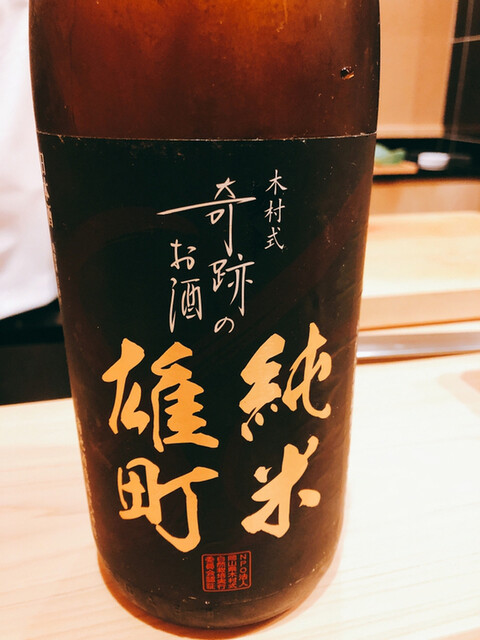 木村式
奇跡の
お酒
純米
雄町
NPO法人
岡山県木村式
自然栽培実行
委員会認証